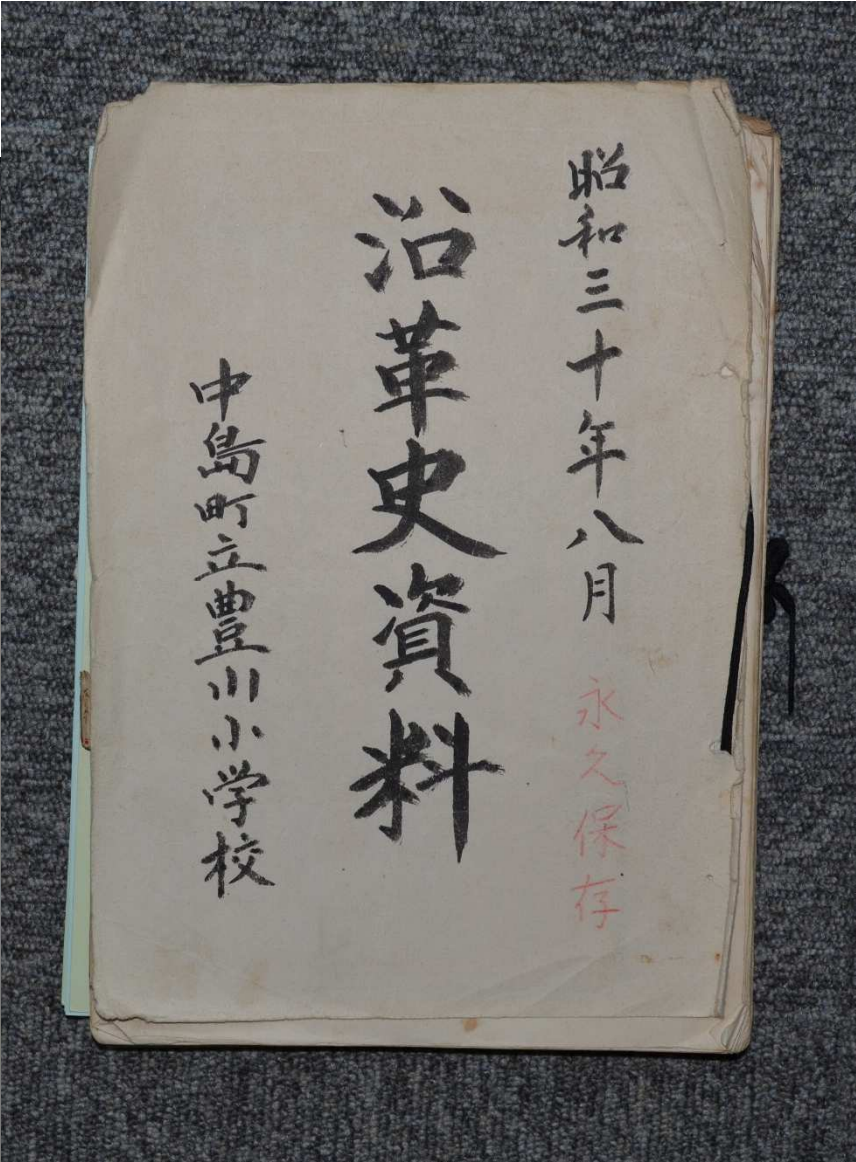 昭和三十年八月
永久保存
沿革史資料
中島町立豊川小学校